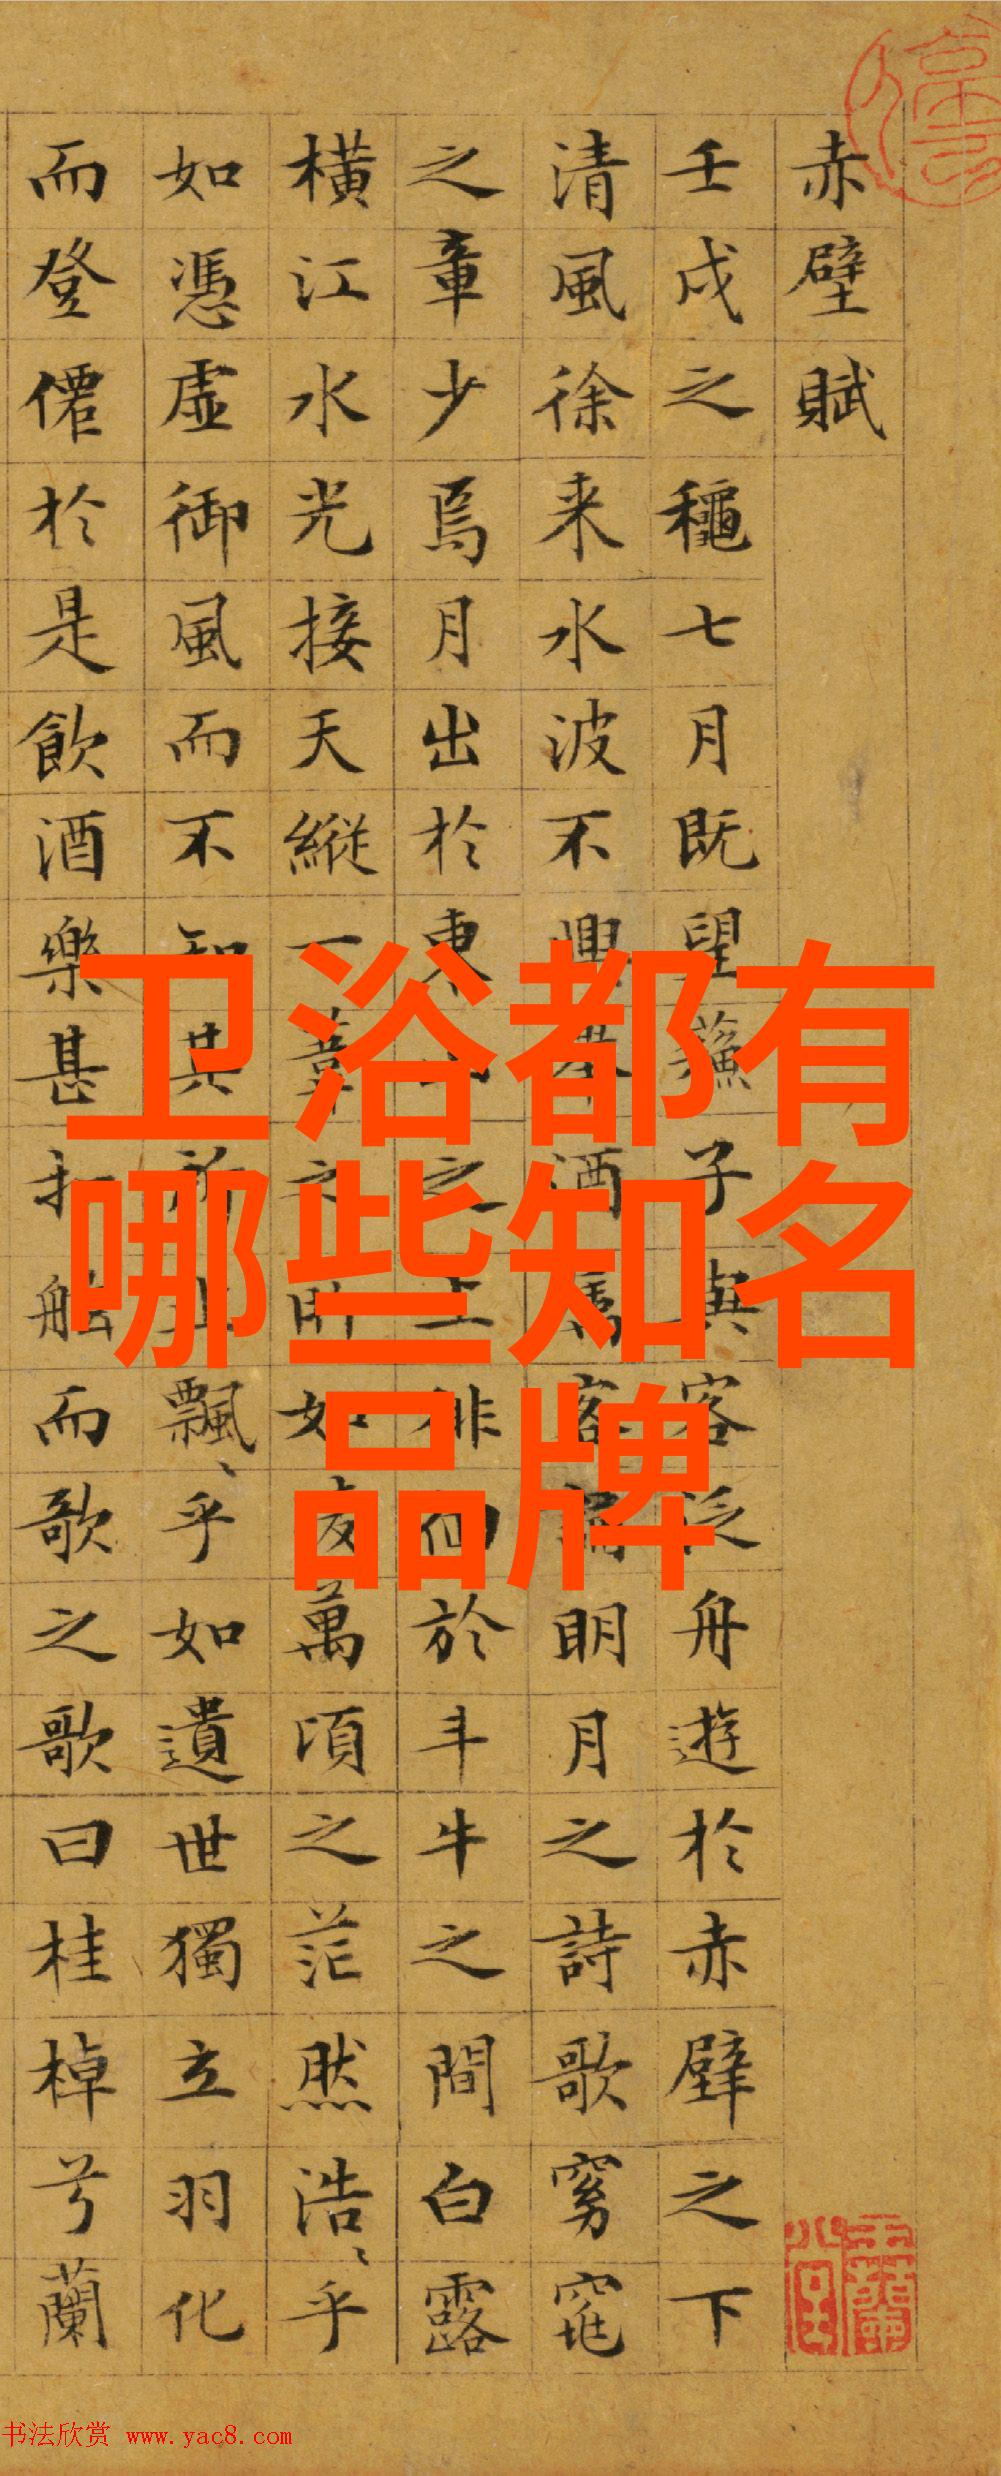 赤壁賦
壬戌之龝七月既望蘓子與客泛舟遊於赤壁之下
清風徐来水波不興舉酒属客誦明月之詩歌窈窕
之章少焉月出於東山之上徘徊於斗牛之間白露
橫江水光接天縦一葦之所如凌萬頃之茫然浩〻乎
如憑虛御風而不知其所止飄〻乎如遺世獨立羽化
而登僊於是飲酒樂甚扣舷而歌之歌曰桂棹兮蘭
卫浴都有
哪些知名
品牌
书法欣赏 www.yac8.com